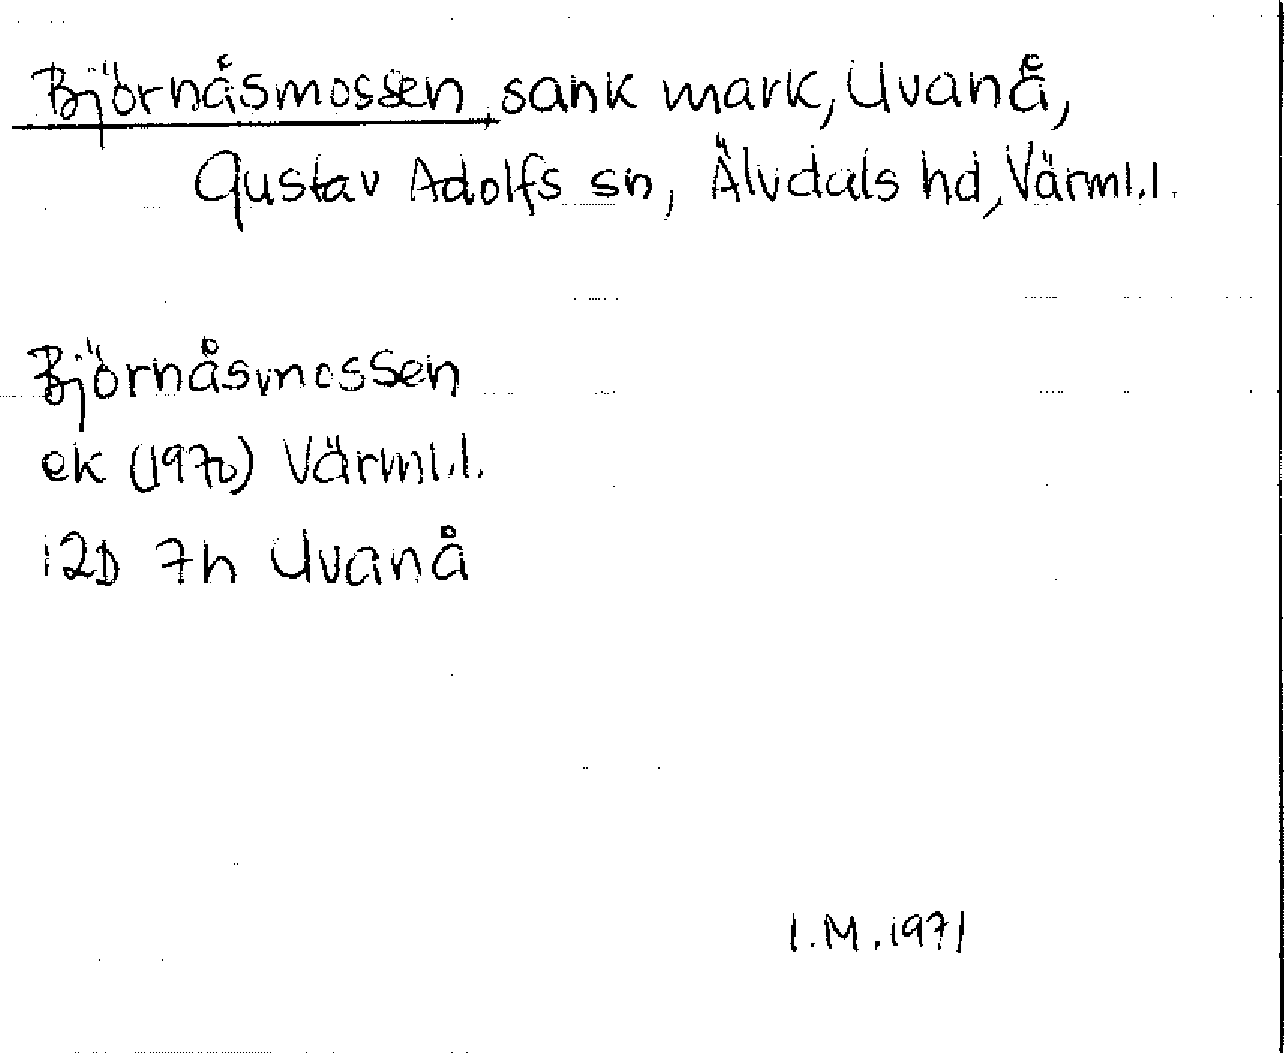 Björnåsmossen, sank mark, Uvanå,
Gustav Adolfs sn, Älvdals hd, Värml.l.
Björnåsmossen
ek (1970) Värml.l.
12D 7h Uvanå
I.M. 1971